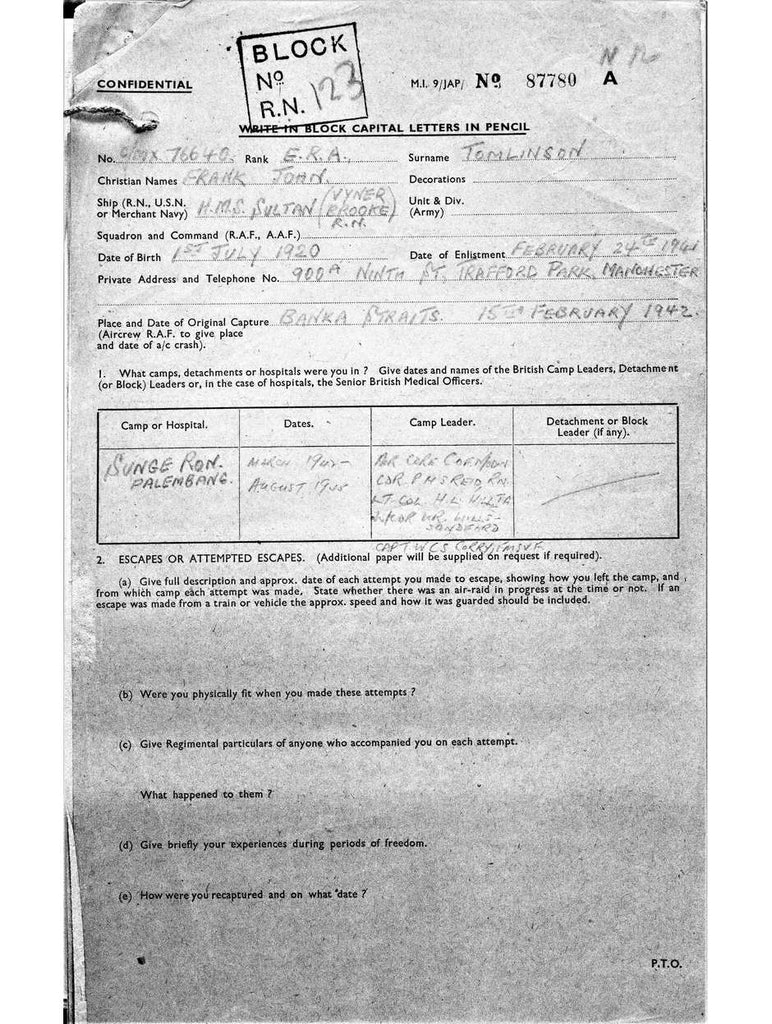 BLOCK
Nº
R.N. 123
CONFIDENTIAL
M.I. 9/JAP/ Nº 87780 A
WRITE IN BLOCK CAPITAL LETTERS IN PENCIL
No. 76640. Rank E.R.A., Surname TOMLINSON
Christian Names FRANK JOHN. Decorations
Ship (R.N., U.S.N. or Merchant Navy) H.M.S. SULTAN (VYNER BROOKE) R.N. Unit & Div. (Army)
Squadron and Command (R.A.F., A.A.F.)
Date of Birth 1ST JULY 1920 Date of Enlistment FEBRUARY 24TH 1941
Private Address and Telephone No. 900A NINTH ST, TRAFFORD PARK, MANCHESTER
Place and Date of Original Capture BANKA STRAITS. 15TH FEBRUARY 1942.
(Aircrew R.A.F. to give place
and date of a/c crash).
1. What camps, detachments or hospitals were you in ? Give dates and names of the British Camp Leaders, Detachment
(or Block) Leaders or, in the case of hospitals, the Senior British Medical Officers.
Camp or Hospital. Dates. Camp Leader. Detachment or Block Leader (if any).
SUNGE RON.
PALEMBANG.
MARCH 1942-
AUGUST 1945
AIR CORE
CDR. P H S REID, RN.
LT COL H L
CAPT W C S CORRY, FMSVF.
2. ESCAPES OR ATTEMPTED ESCAPES. (Additional paper will be supplied on request if required).
(a) Give full description and approx. date of each attempt you made to escape, showing how you left the camp, and
from which camp each attempt was made. State whether there was an air-raid in progress at the time or not. If an
escape was made from a train or vehicle the approx. speed and how it was guarded should be included.
(b) Were you physically fit when you made these attempts ?
(c) Give Regimental particulars of anyone who accompanied you on each attempt.
What happened to them ?
(d) Give briefly your experiences during periods of freedom.
(e) How were you recaptured and on what date ?
P.T.O.